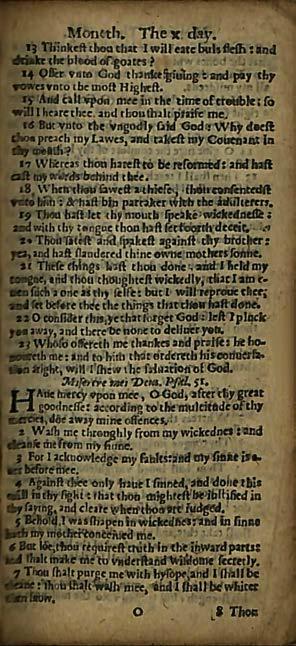 Moneth. The x. day.
13 Thinkest thou that I will eate buls flesh: and
drinke the blood of goates?
14 Offer vnto God thankesgiuing: and pay thy
vowes vnto the most Highest.
15 And call vpon mee in the time of trouble: so
will I heare thee, and thou shalt praise me.
16 But vnto the vngodly said God: Why doest
thou preach my Lawes, and takest my Couenant in
thy mouth?
17 Whereas thou hatest to be reformed: and hast
cast my words behind thee.
18 When thou sawest a thiefe, thou consentedst
vnto him: & hast bin partaker with the adulterers.
19 Thou hast let thy mouth speake wickednesse:
and with thy tongue thou hast set foorth deceit.
20 Thou satest and spakest against thy brother:
yea, and hast slandered thine owne mothers sonne.
21 These things hast thou done, and I held my
tongue, and thou thoughtest wickedly, that I am e-
uen such a one as thy selfe: but I will reproue thee,
and set before thee the things that thou hast done.
22 O consider this, ye that forget God: lest I pluck
you away, and there be none to deliuer you.
23 Whoso offereth me thankes and praise: he ho-
noureth me: and to him that ordereth his conuersa-
tion aright, will I shew the saluation of God.
Miserere mei Deus. Psal. 51.
HAue mercy vpon mee, O God, after thy great
goodnesse: according to the multitude of thy
mercies, doe away mine offences.
2 Wash me throughly from my wickednes: and
cleanse me from my sinne.
3 For I acknowledge my faults: and my sinne is e-
uer before mee.
4 Against thee only haue I sinned, and done this
euill in thy sight: that thou mightest be iustified in
thy saying, and cleare when thou art iudged.
5 Behold, I was shapen in wickednes: and in sinne
hath my mother conceiued me.
6 But loe, thou requirest truth in the inward parts:
and shalt make me to vnderstand wisdome secretly.
7 Thou shalt purge me with hysope, and I shall be
cleane: thou shalt wash mee, and I shall be whiter
then snow.
O 8 Thou